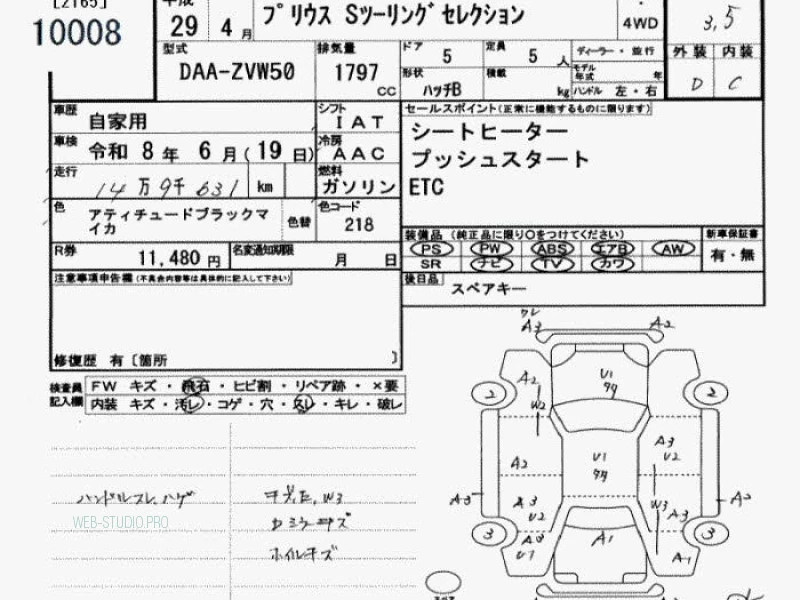 [2165]
10008
平成
29 4月
プリウス Sツーリングセレクション
4WD
3,5
型式
DAA-ZVW50
排気量
1797
CC
ドア 5 定員 5人
ディーラー・並行
モデル年式 年
形状 ハッチB 積載 kg
ハンドル 左・右
外装 内装
D C
車歴 自家用
シフト IAT
車検 令和 8年 6月(19日)
冷房 AAC
走行 14万9千631 km
燃料 ガソリン
色 アティチュードブラックマイカ
色替
色コード 218
R券 11,480円
名変通知期限 月 日
セールスポイント(正常に機能するものに限ります)
シートヒーター
プッシュスタート
ETC
装備品 (純正品に限り○をつけてください)
新車保証書
PS PW ABS エアB AW
SR ナビ TV カワ
有・無
後日品 スペアキー
注意事項申告欄(不具合内容等は具体的に記入して下さい)
修復歴 有〔箇所 〕
検査員記入欄
FW キズ・飛石・ヒビ割・リペア跡・×要
内装 キズ・汚レ・コゲ・穴・スレ・キレ・破レ
ハンドルスレ、ハゲ
キズ凹、W3
カミラキズ
ホイルキズ
WEB-STUDIO.PRO
ワレ
A3 A2
A2 U1
2 2
W2
A3
U2
A2 U1
A3 A3 U2 W3 A3 A2
3 A3 U1 A1 A1 3